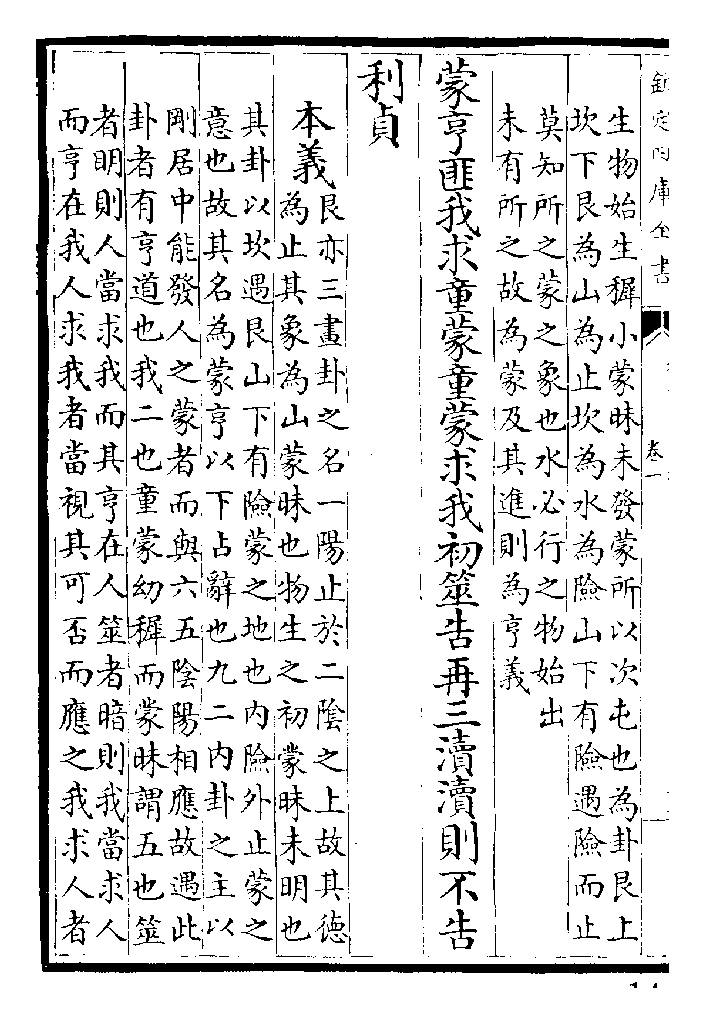 欽定四庫全書
卷一
生物始生穉小蒙昧未發蒙所以次屯也為卦艮上
坎下艮為山為止坎為水為險山下有險遇險而止
莫知所之蒙之象也水必行之物始出
未有所之故為蒙及其進則為亨義
蒙亨匪我求童蒙童蒙求我初筮告再三瀆瀆則不告
利貞
本義
艮亦三畫卦之名一陽止於二陰之上故其德
為止其象為山蒙昧也物生之初蒙昧未明也
其卦以坎遇艮山下有險蒙之地也内險外止蒙之
意也故其名為蒙亨以下占辭也九二内卦之主以
剛居中能發人之蒙者而與六五陰陽相應故遇此
卦者有亨道也我二也童蒙幼穉而蒙昧謂五也筮
者明則人當求我而其亨在人筮者暗則我當求人
而亨在我人求我者當視其可否而應之我求人者